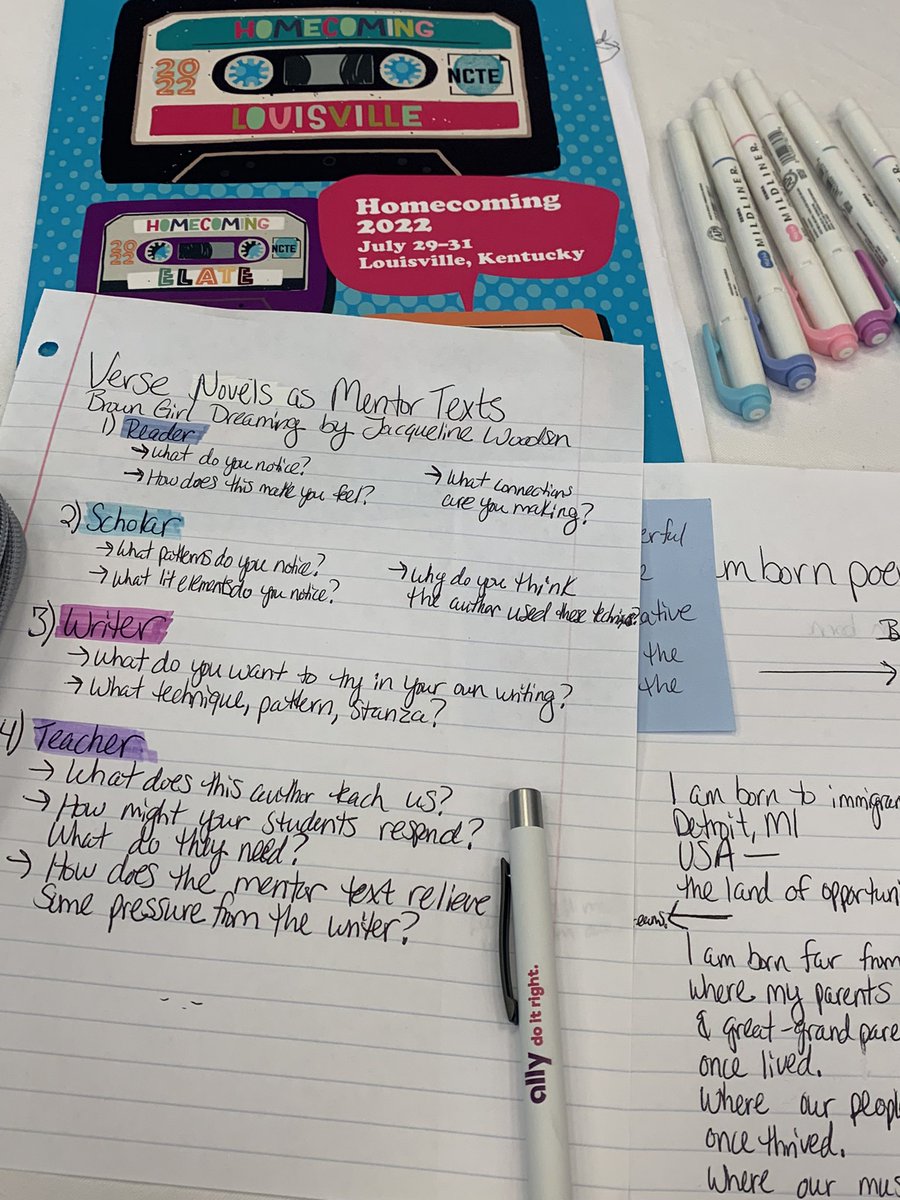 HOMECOMING
2022
NCTE
LOUISVILLE
HOMECOMING
2022
NCTE
ELATE
Homecoming
2022
July 29–31
Louisville, Kentucky
MILDLINER
MILDLINER
Verse Novels as Mentor Texts
Brown Girl Dreaming by Jacqueline Woodson
1) Reader
→ What do you notice?
→ How does this make you feel?
→ What connections
are you making?
2) Scholar
→ What patterns do you notice?
→ What lit elements do you notice?
→ Why do you think
the author used these
3) Writer
→ What do you want to try in your own writing?
→ What technique, pattern, stanza?
4) Teacher
→ What does this author teach us?
→ How might your students respond?
What do they need?
→ How does the mentor text relieve
some pressure from the writer?
ally do it right.
erful
ative
the
the
m born poe
B
I am born to immigran
Detroit, MI
USA —
the land of opportuni
I am born far from
where my parents
& great-grand pare
once lived.
Where our peopl
once thrived.
Where our mus